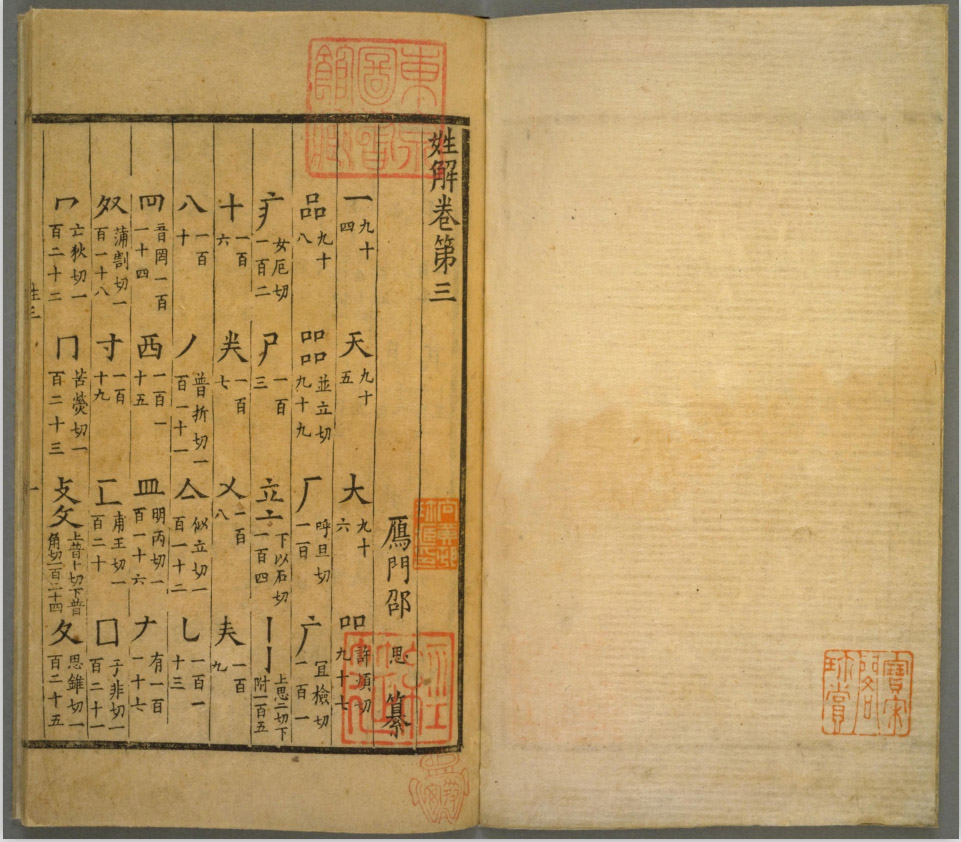 姓解卷第三
鴈門邵思纂
一九十四 天九十五 大九十六 吅許煩切九十七
品九十八 㗊並立切九十九 厂呼旦切一百 广冝檢切一百一
疒女厄切一百二 尸一百三 立亠下以石切一百四 丨亅上思二切下附一百五
十一百六 一百七 乂一百八 夫一百九
八一百十 丿普折切一百一十一 亼似立切一百一十二 乚一百一十三
罒音罔一百一十四 西一百一十五 皿明丙切一百一十六 𠂇有一百一十七
癶蒲割切一百一十八 寸一百一十九 匚甫王切一百二十 囗子非切一百二十一
冖亡狄切一百二十二 冂苦熒切一百二十三 攴攵上普卜切下普角切一百二十四 夂思錐切一百二十五
姓三 一
東京圖書館藏
向黃邨珍藏印
寶宋閣珍賞